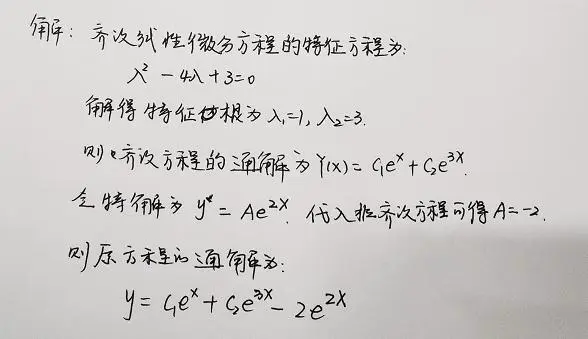 解：齐次线性微分方程的特征方程为:
λ² - 4λ + 3 = 0
解得特征根为 λ₁=1, λ₂=3.
则齐次方程的通解为 Y(x) = C₁eˣ + C₂e³ˣ.
令特解为 y* = Ae²ˣ. 代入非齐次方程可得 A=-2.
则原方程的通解为:
y = C₁eˣ + C₂e³ˣ - 2e²ˣ